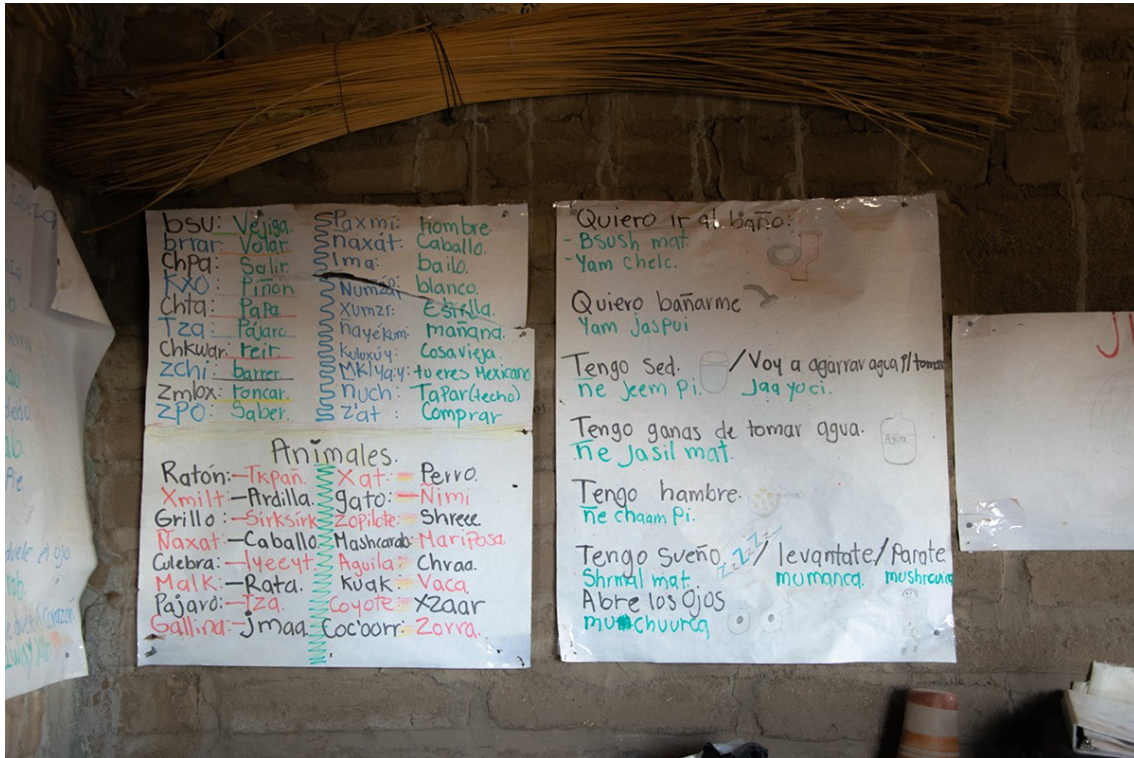 bsu: Vejiga.
brrar: Volar.
Chpa: Salir.
KXO: Piñon
Chta: PaPa.
Tza: Pájaro.
Chkwar: reir.
zchi: barrer.
Zmlox: roncar.
zPO: Saber.
Paxmi: hombre
ñaxát: Caballo.
Ima: bailo.
Numzái blanco.
Xumzi: Estrella.
ñayekum: mañana.
Kuluxúy: Cosa vieja.
MKlyay: tu eres Mexicano
nuch: Tapar (techo)
z'at: Comprar
Animales.
Ratón: Tkpañ.
Xmilt Ardilla.
Grillo: Sirksirk
Ñaxat: Caballo
Culebra: Iyeeyt.
Malk: Rata.
Pajaró: Tza.
Gallina: Jmaa.
Xat: Perro.
gato: Ñimi
Zopilote: Shreee
Mashcarab: Mariposa.
Aguila: Chraa.
Kuak: Vaca.
Coyote: Xzaar
Coc'oorr: Zorra.
Quiero ir al baño:
- Bsush mat.
- Yam chelc.
Quiero bañarme
Yam jaspui
Tengo sed. / Voy a agarrar agua p/tomar
ñe Jeem Pi. Jaa yoci.
Tengo ganas de tomar agua.
Agua
ñe Jasil mat.
Tengo hambre.
ñe chaam Pi.
Tengo Sueño zzzzzz / levantate / Parate
Shmal mat. mumanca. mushrauca
Abre los Ojos
mu chuurca